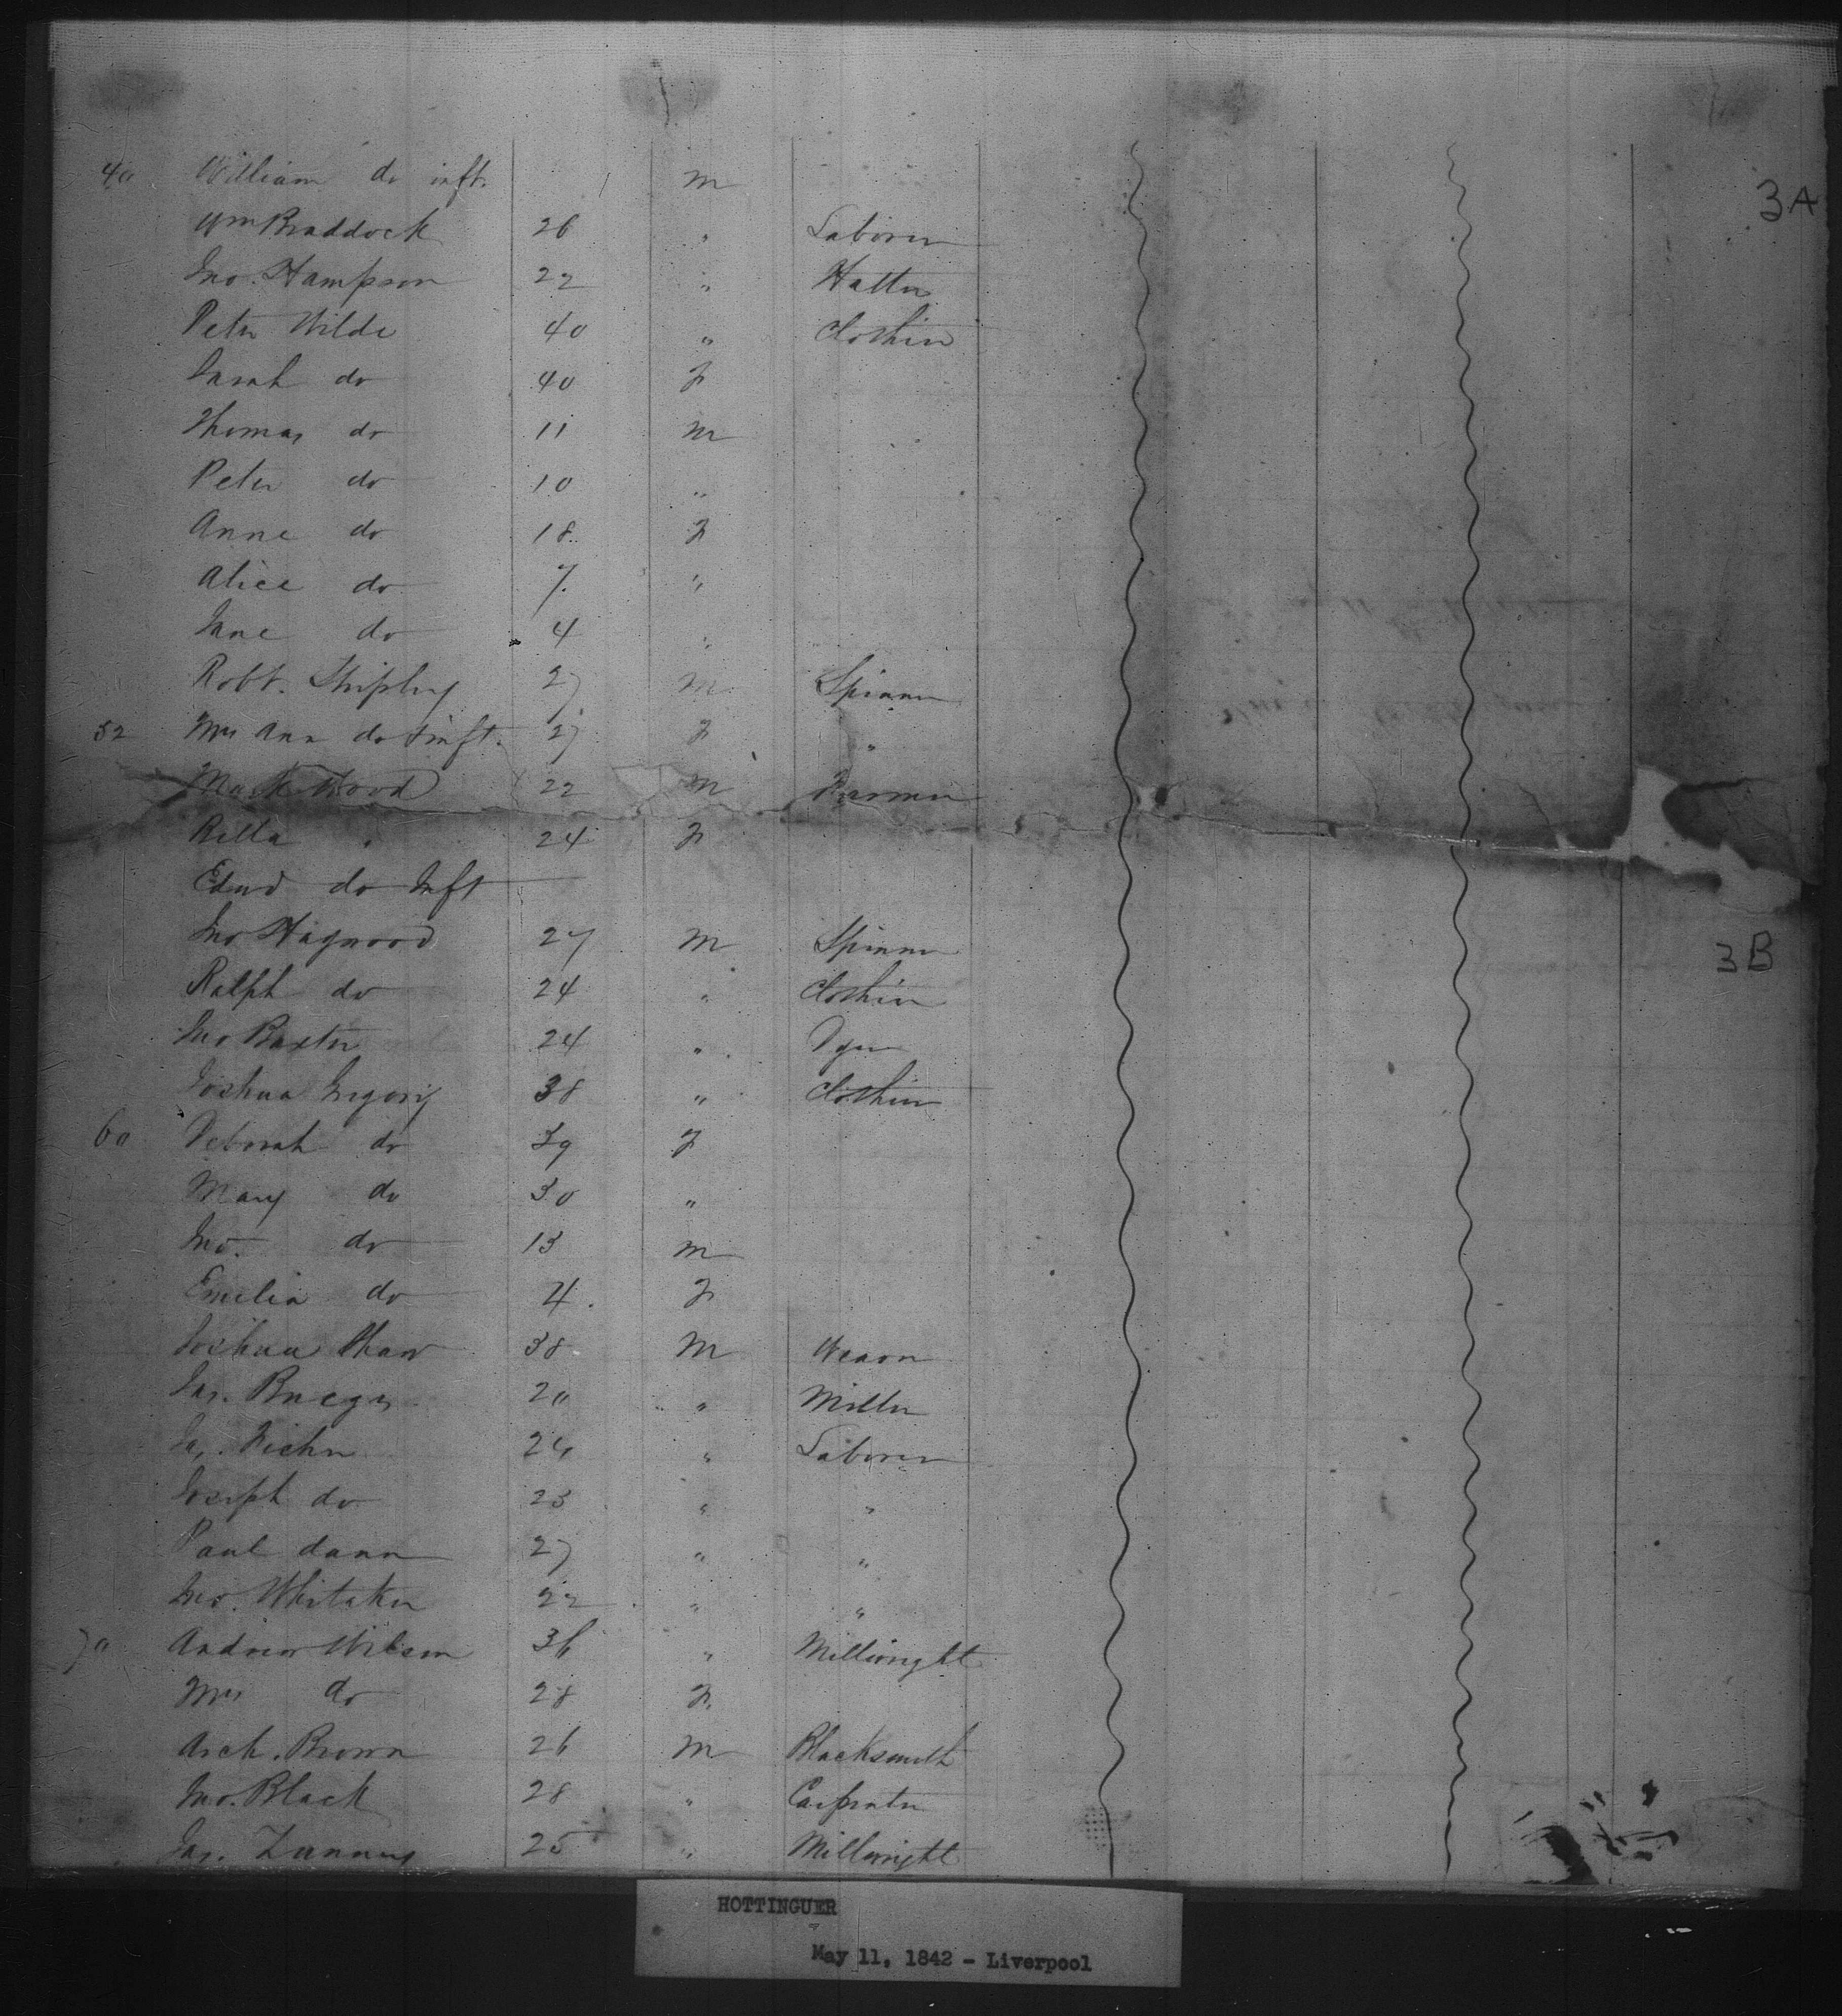 40 William do inft. m
3A
Wm Braddock 26 " Laborer
Jno. Hampson 22 " Hatter
Peter Wilde 40 " Clothier
Sarah do 40 F
Thomas do 11 m
Peter do 10 "
Anne do 18 F
Alice do 7 "
Jane do 4 "
Robt. Shipley 27 m Spinner
52 Mrs Ann do & inft. 27 F "
Mark Wood 22 m Farmer
Betta " 24 F
Edwd do Inft
Jno Hagwood 27 m Spinner
3B
Ralph do 24 " Clothier
Jno Baxter 24 " Dyer
Joshua Gregory 38 " Clothier
60 Deborah do 39 F
Mary do 30 "
Jno. do 13 m
Emelia do 4 F
Joshua Shaw 38 m Weaver
Jas. 20 " Miller
Jas. 24 " Laborer
Joseph do 23 " "
Paul dann 27 " "
Jno. Whitaker 22 " "
70 Andrew Wilson 36 " Millwright
Mrs do 28 F
Arch. Brown 26 m Blacksmith
Jno. Black 28 " Carpenter
Jas. 25 " Millwright
HOTTINGUER
May 11, 1842 - Liverpool